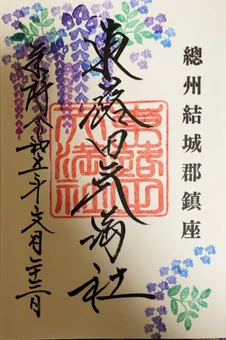 總州結城郡鎮座
東蕗田天満社
奉拝 令和五年六月二十三日